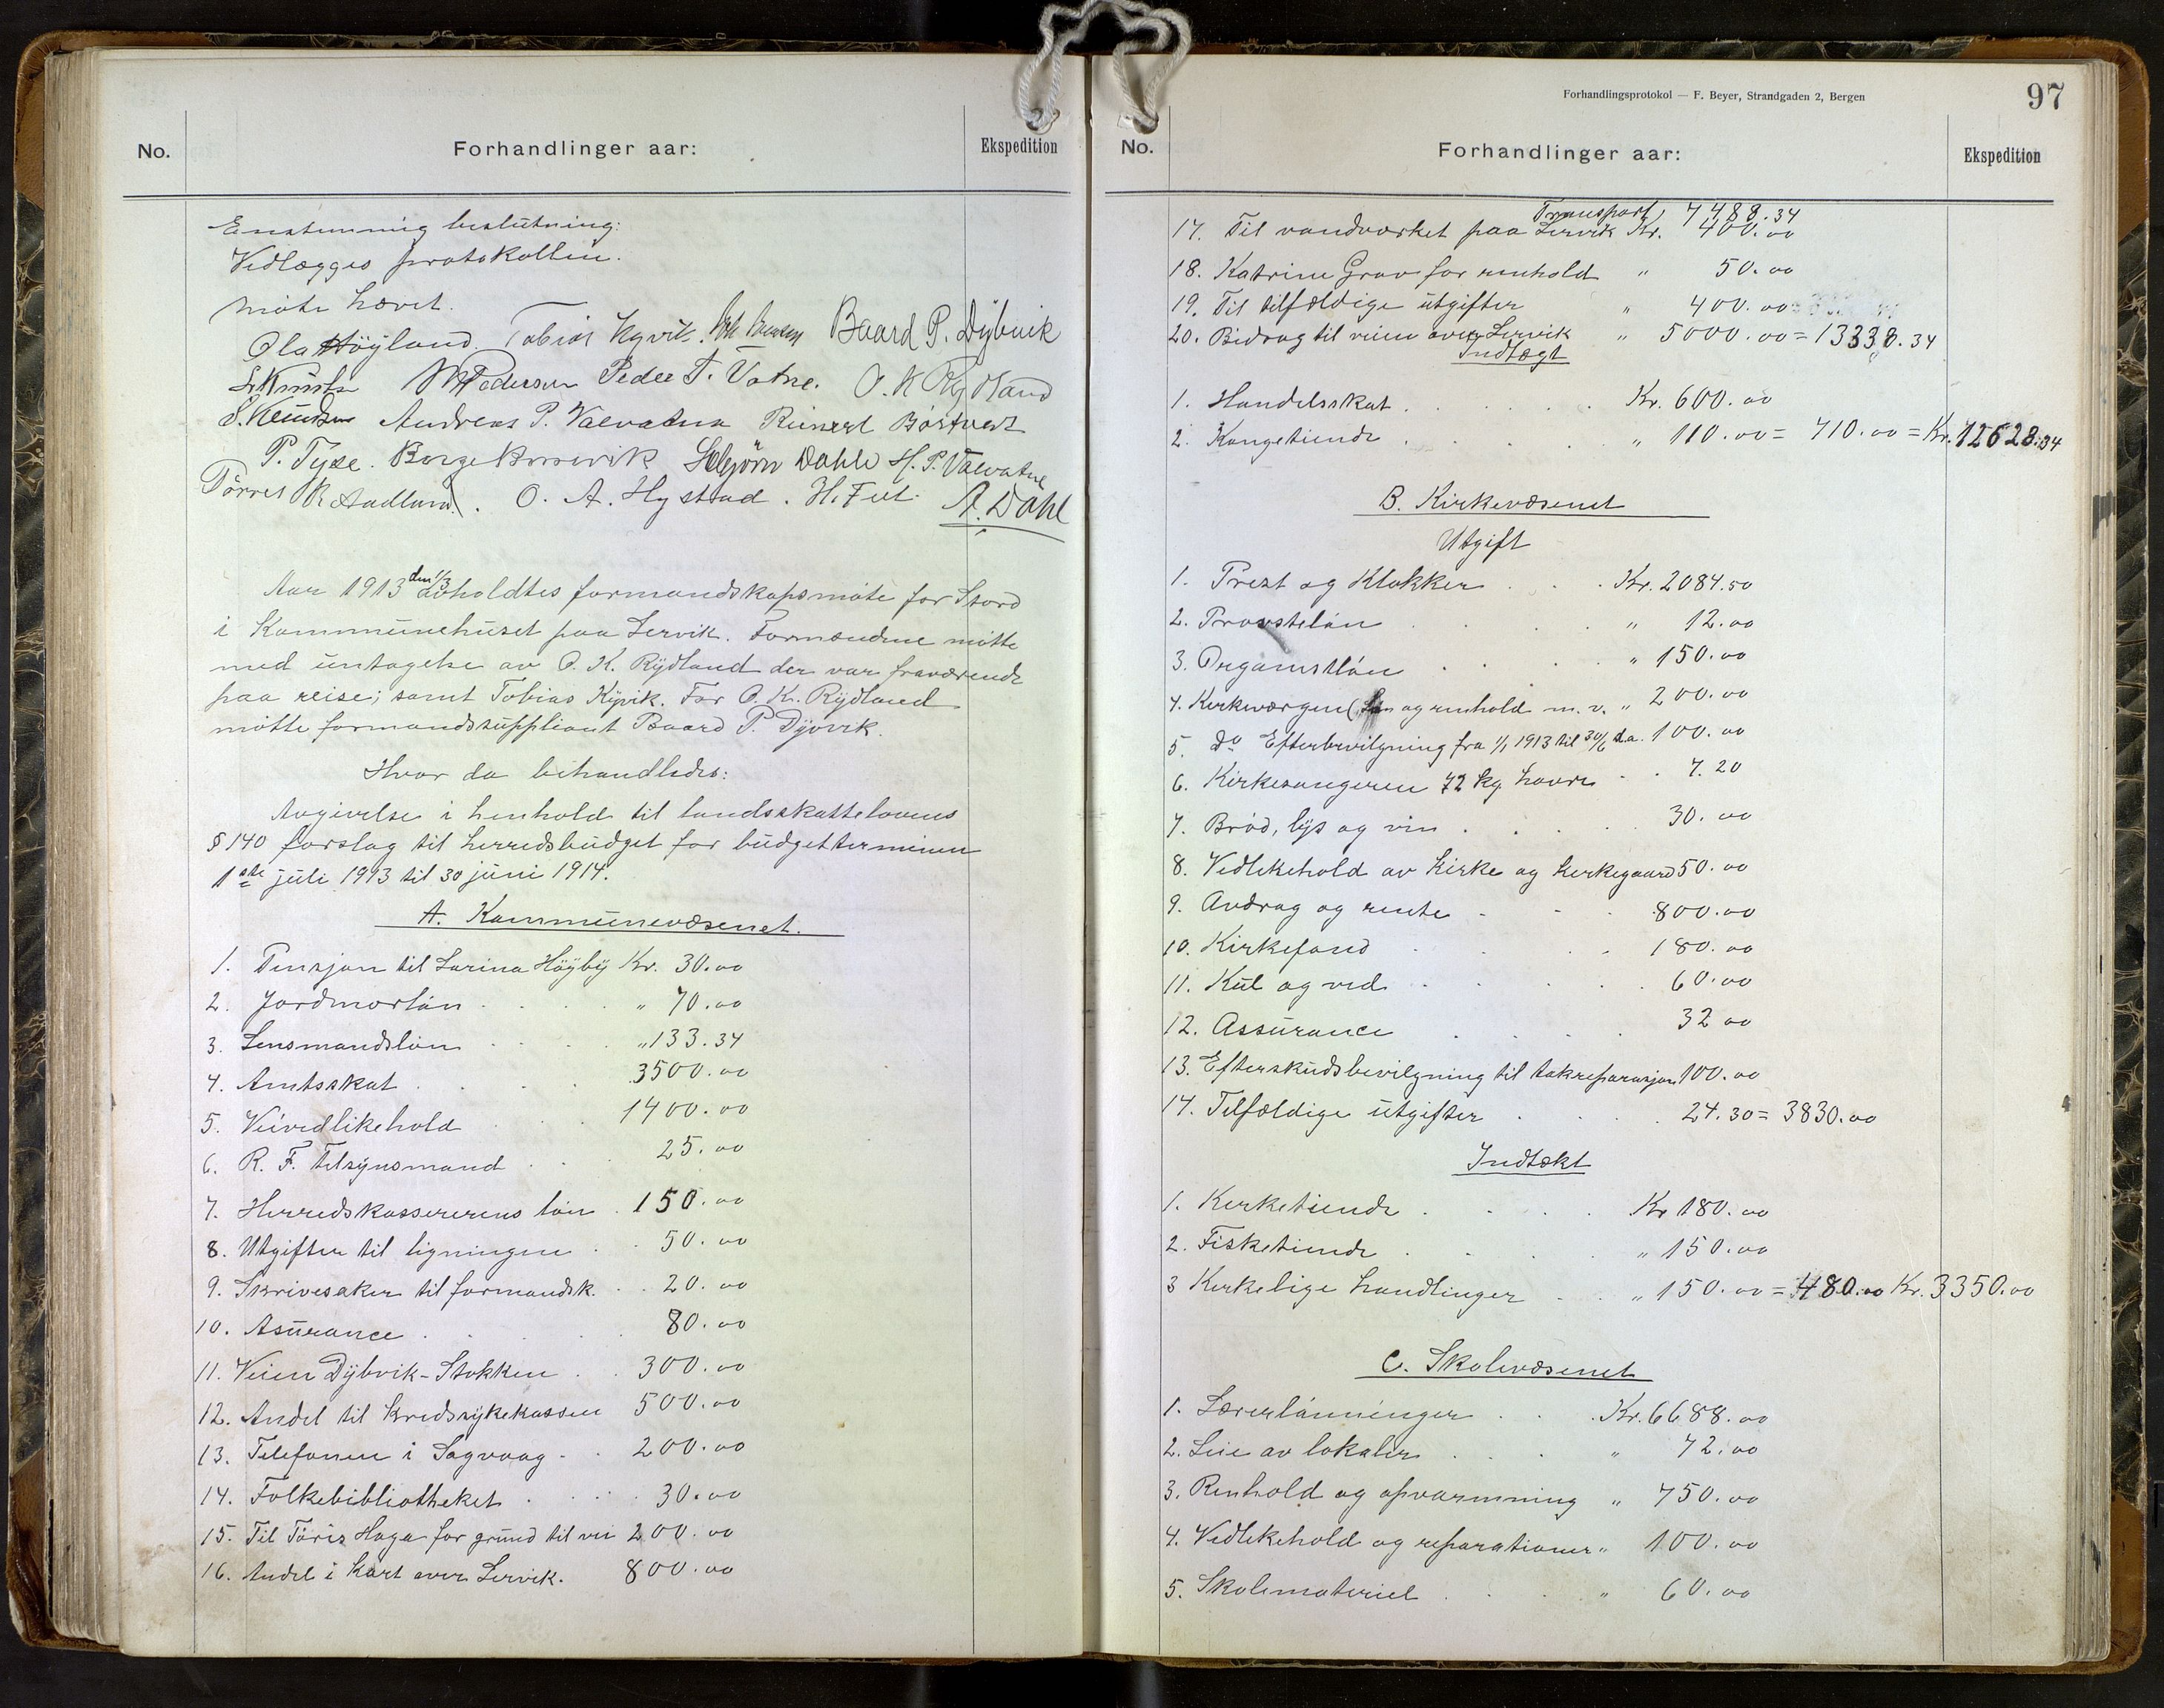 No.
Forhandlinger aar:
Ekspedition
Enstemmig beslutning:
Vedlægges protokollen.
Møte hævet.
Ola Høyland. Tobias Kyvik. Baard P. Dybvik
Pedersen Peder T. Vatne. O. K. Rydland
Andreas P. Valvatna Reinert Børtveit
P. Tyse. Børge Dahle H. P. Valvatne
Tørres Aadland. O. A. Hystad. H. Fut. A. Dahl
Aar 1913 den 1/3 avholdtes formandskapsmøte for Stord
i Kommunehuset paa Lervik. Formændene møtte
med untagelse av O. K. Rydland der var fraværende
paa reise; samt Tobias Kyvik. For O. K. Rydland
møtte formandssuppliant Baard P. Dyvvik.
Hvor da behandledes:
Avgivelse i henhold til landsskattelovens
§ 140 forslag til herredsbudget for budgetterminen
1ste juli 1913 til 30 juni 1914.
A. Kommunevæsenet.
1. Pensjon til Larina Höyby Kr. 30.00
2. Jordmorløn . . . " 70.00
3. Lensmandsløn . . . " 133.34
4. Amtsskat . . . 3500.00
5. Veivedlikehold . . . 1400.00
6. R. F. Tilsynsmand . . 25.00
7. Herredskassererens løn . 150.00
8. Utgifter til ligningen . . 50.00
9. Skrivesaker til formandsk. . . 20.00
10. Asurance . . . 80.00
11. Veien Dybvik - Stokken . . 300.00
12. Andel til Kredssykekassen 500.00
13. Telefonen i Sagvaag . . 200.00
14. Folkebibliotheket . . . 30.00
15. Til Töris Haga for grund til vei 200.00
16. Andel i Kart over Lervik. 800.00
Forhandlingsprotokol — F. Beyer, Strandgaden 2, Bergen
97
No.
Forhandlinger aar:
Ekspedition
Transport, 7488.34
17. Til vandværket paa Lervik Kr. 400.00
18. Katrine Grov for renhold " 50.00
19. Til tilfældige utgifter " 400.00
20. Bidrag til veien over Lervik " 5000.00 = 13338.34
Indtægt
1. Handelsskat . . . . Kr. 600.00
2. Kongetiende . . . . " 110.00 = 710.00 = Kr. 12628.34
B. Kirkevæsenet
Utgift
1. Prest og Klokker . . . Kr. 2084.50
2. Provsteløn . . . " 12.00
3. Organistløn . . . " 150.00
4. Kirkeværgen (Løn og renhold m. v. " 200.00
5. do Efterbevilgning fra 1/1 1913 til 30/6 d.a. 100.00
6. Kirkesangeren 72 kg havre . . 7.20
7. Brød, lys og vin . . . 30.00
8. Vedlikehold av Kirke og Kirkegaard 50.00
9. Avdrag og rente . . . 800.00
10. Kirkefond . . . 180.00
11. Kul og ved . . . 60.00
12. Assurance . . . 32 00
13. Efterskudsbevilgning til takreparasjon 100.00
14. Tilfældige utgifter . . . 24.30 = 3830.00
Indtækt
1. Kirketiende . . . Kr 180.00
2. Fisketiende . . . " 150.00
3 Kirkelige handlinger . . " 150.00 = 480.00 Kr. 3350.00
C. Skolevæsenet
1. Lærerlønninger . . . Kr. 6688.00
2. Leie av lokaler . . . " 72.00
3. Renhold og opvarmning " 750.00
4. Vedlikehold og reparationer " 100.00
5. Skolemateriel . . . " 60.00